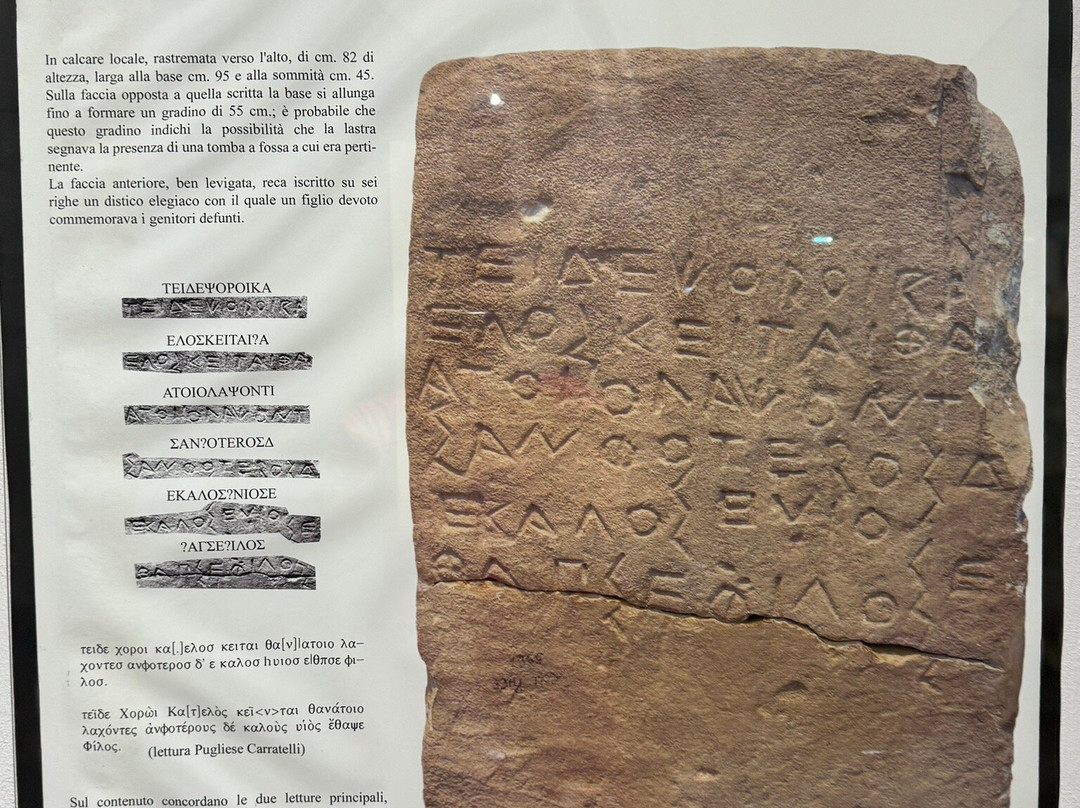 In calcare locale, rastremata verso l'alto, di cm. 82 di
altezza, larga alla base cm. 95 e alla sommità cm. 45.
Sulla faccia opposta a quella scritta la base si allunga
fino a formare un gradino di 55 cm.; è probabile che
questo gradino indichi la possibilità che la lastra
segnava la presenza di una tomba a fossa a cui era perti-
nente.
La faccia anteriore, ben levigata, reca iscritto su sei
righe un distico elegiaco con il quale un figlio devoto
commemorava i genitori defunti.
ΤΕΙΔΕΨΟΡΟΙΚΑ
ΕΛΟΣΚΕΙΤΑΙ?Α
ΑΤΟΙΟΛΑΨΟΝΤΙ
ΣΑΝ?ΟΤΕROΣΔ
ΕΚΑΛΟΣ?ΝΙΟΣΕ
?ΑΓΣΕ?ΙΛΟΣ
τειδε χοροι κα[.]ελοσ κειται θα[ν]|ατοιο λα–
χοντεσ ανφοτεροσ δ' ε καλοσ hυιοσ ε|θπσε φι–
λοσ.
τεῖδε Χορὼι Κα[τ]ελὸς κεῖ<ν>ται θανάτοιο
λαχόντες ἀνφοτέρους δέ καλοὺς υἱὸς ἔθαψε
Φίλος.
(lettura Pugliese Carratelli)
Sul contenuto concordano le due letture principali,